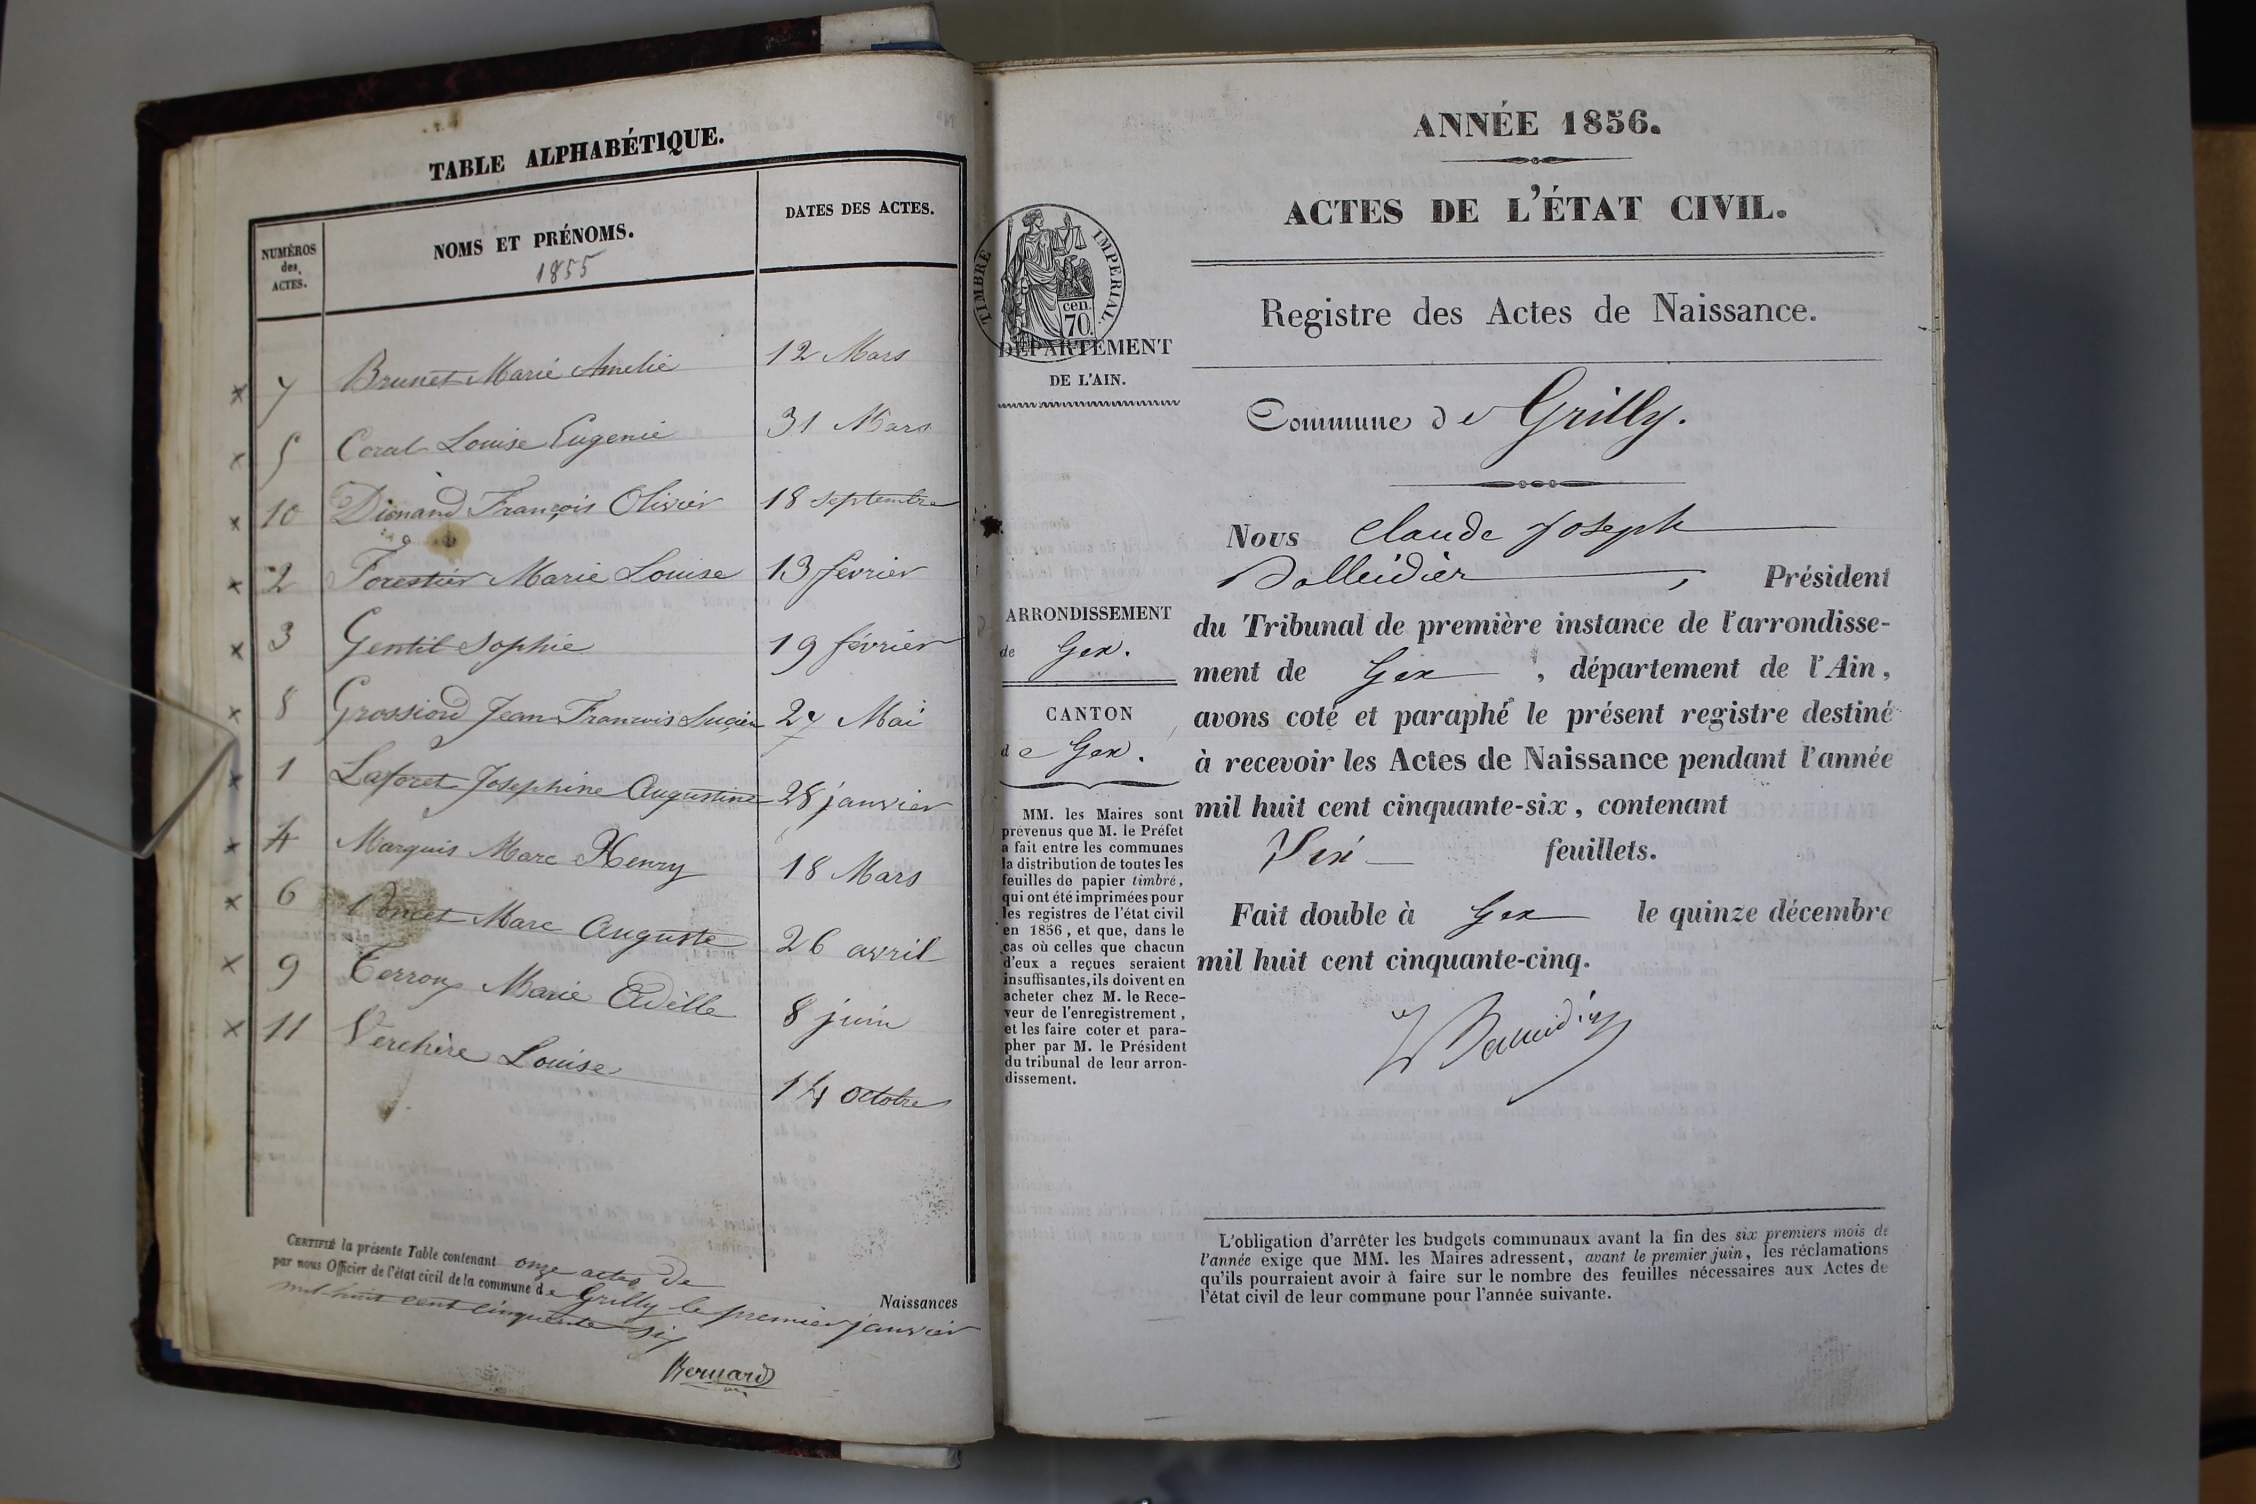 TABLE ALPHABÉTIQUE.
NUMÉROS des ACTES.
NOMS ET PRÉNOMS.
1855
DATES DES ACTES.
× 7 Brunet Marie Amelie 12 Mars
× 5 Coral Louise Eugenie 31 Mars
× 10 Dionand François Olivier 18 septembre
× 2 Forestier Marie Louise 13 fevrier
× 3 Gentil Sophie 19 février
× 8 Grossiord Jean François Lucien 27 Mai
× 1 Laforet Josephine Augustine 28 janvier
× 4 Marquis Marc Henry 18 Mars
× 6 Poncet Marc Auguste 26 avril
× 9 Terroux Marie Adèlle 8 juin
× 11 Verchère Louise 14 octobre
CERTIFIÉ la présente Table contenant onze actes de
Naissances
par nous Officier de l'état civil de la commune de Grilly le premier janvier
mil huit cent cinquante six
Bernard
ANNÉE 1856.
ACTES DE L'ÉTAT CIVIL.
TIMBRE IMPERIAL.
cen.
70.
DÉPARTEMENT
DE L'AIN.
ARRONDISSEMENT
de Gex.
CANTON
de Gex.
MM. les Maires sont
prévenus que M. le Préfet
a fait entre les communes
la distribution de toutes les
feuilles de papier timbré,
qui ont été imprimées pour
les registres de l'état civil
en 1856, et que, dans le
cas où celles que chacun
d'eux a reçues seraient
insuffisantes, ils doivent en
acheter chez M. le Rece-
veur de l'enregistrement,
et les faire coter et para-
pher par M. le Président
du tribunal de leur arron-
dissement.
Registre des Actes de Naissance.
Commune de Grilly.
Nous Claude Joseph
Balleidier, Président
du Tribunal de première instance de l'arrondisse-
ment de Gex, département de l'Ain,
avons coté et paraphé le présent registre destiné
à recevoir les Actes de Naissance pendant l'année
mil huit cent cinquante-six, contenant
Six feuillets.
Fait double à Gex le quinze décembre
mil huit cent cinquante-cinq.
L'obligation d'arrêter les budgets communaux avant la fin des six premiers mois de
l'année exige que MM. les Maires adressent, avant le premier juin, les réclamations
qu'ils pourraient avoir à faire sur le nombre des feuilles nécessaires aux Actes de
l'état civil de leur commune pour l'année suivante.